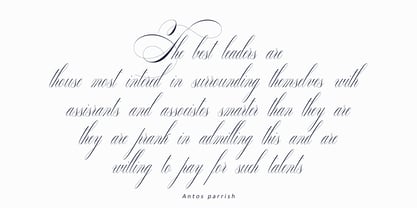 The best leaders are
those most intered in surrounding themselves with
assisrants and associstes smarter than they are
they are prank in admitling this and are
willing to pay for such talents
Antos parrish